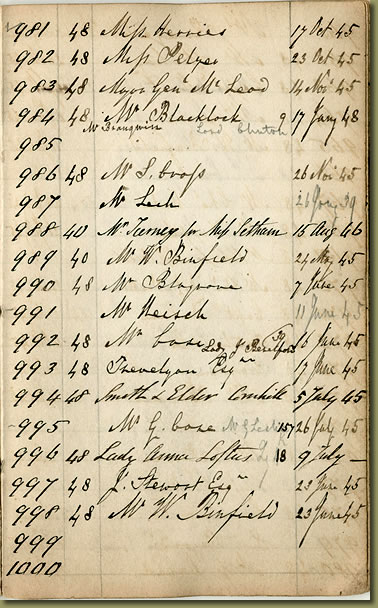 981 48 Miss Herries 17 Oct 45
982 48 Miss Pelzer 23 Oct 45
983 48 Major Genl Mc Leod 14 Nov 45
984 48 Mr Blacklock 9 17 Jany 48
Mr Brangwin Lord
985
986 48 Mr S. 26 Nov 45
987 Mr Lech 39
988 40 Mr Tierney for Miss 15 Aug 46
989 40 Mr W. Binfield 24 45
990 48 Mr Blagrove 7 June 45
991 Mr Heisch 11 June 45
992 48 Mr Case Lady J Beresford 39 16 June 45
993 48 Trevelyan Esqre 17 June 45
994 48 Smith & Elder Cornhill 5 July 45
995 Mr G. Case 157 26 July 45
996 48 Lady Anna Loftus 18 9 July —
997 48 J. Stewart Esqr 23 June 45
998 48 Mr W. Binfield 23 June 45
999
1000